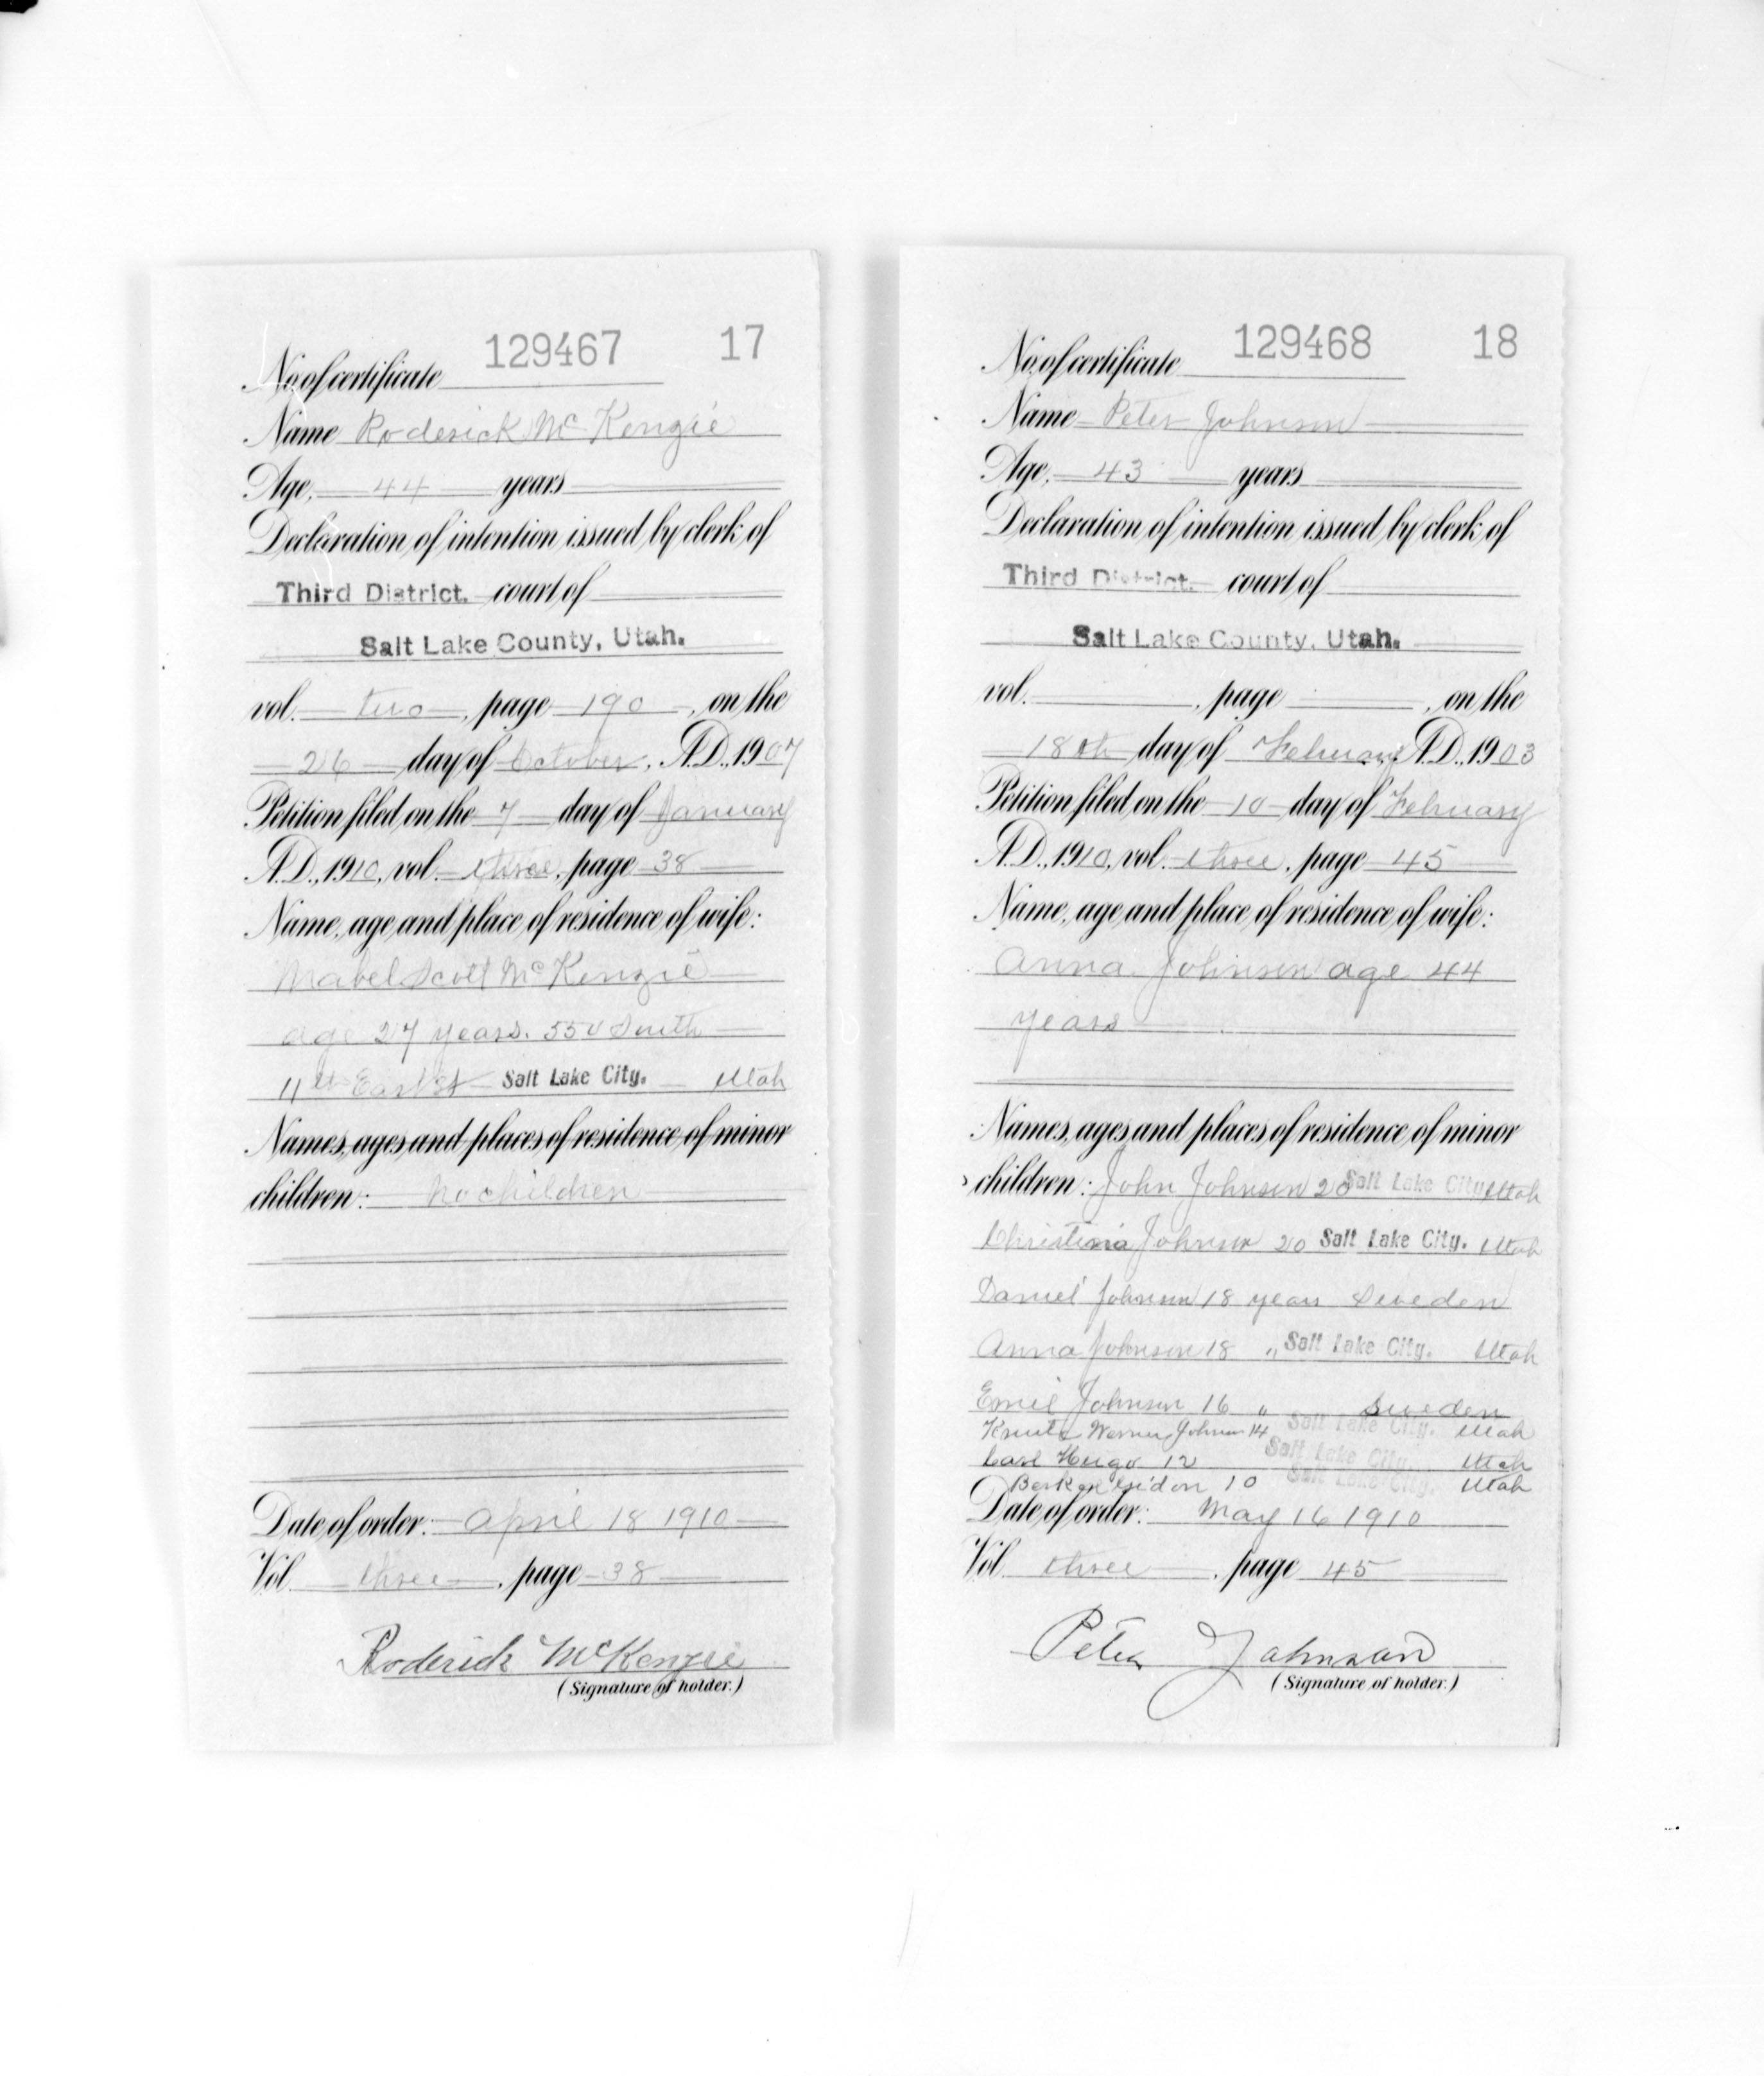 129467 17
No. of certificate
Name Roderick McKenzie
Age, 44 years
Declaration of intention issued by clerk of
Third District. court of
Salt Lake County, Utah.
vol. two, page 190, on the
26 day of October, A.D. 1907
Petition filed on the 7 day of January
A.D. 1910, vol. three, page 38
Name, age and place of residence of wife:
Mabel Scott McKenzie
age 27 years. 550 South
11th East St Salt Lake City. Utah
Names, ages and places of residence of minor
children: No children
Date of order: April 18 1910
Vol. three, page 38
Roderick McKenzie
(Signature of holder.)
129468 18
No. of certificate
Name Peter Johnson
Age, 43 years
Declaration of intention issued by clerk of
Third District. court of
Salt Lake County, Utah.
vol. , page , on the
18th day of February A.D. 1903
Petition filed on the 10 day of February
A.D. 1910, vol. three, page 45
Name, age and place of residence of wife:
Anna Johnson age 44
years
Names, ages and places of residence of minor
children: John Johnson 20 Salt Lake City Utah
Christina Johnson 20 Salt Lake City. Utah
Daniel Johnson 18 years Sweden
Anna Johnson 18 " Salt Lake City. Utah
Emil Johnson 16 " Sweden
Knute Werner Johnson 14 Salt Lake City. Utah
Carl Hugo 12 Salt Lake City. Utah
10 Salt Lake City. Utah
Date of order: May 16 1910
Vol. three, page 45
Peter Johnson
(Signature of holder.)